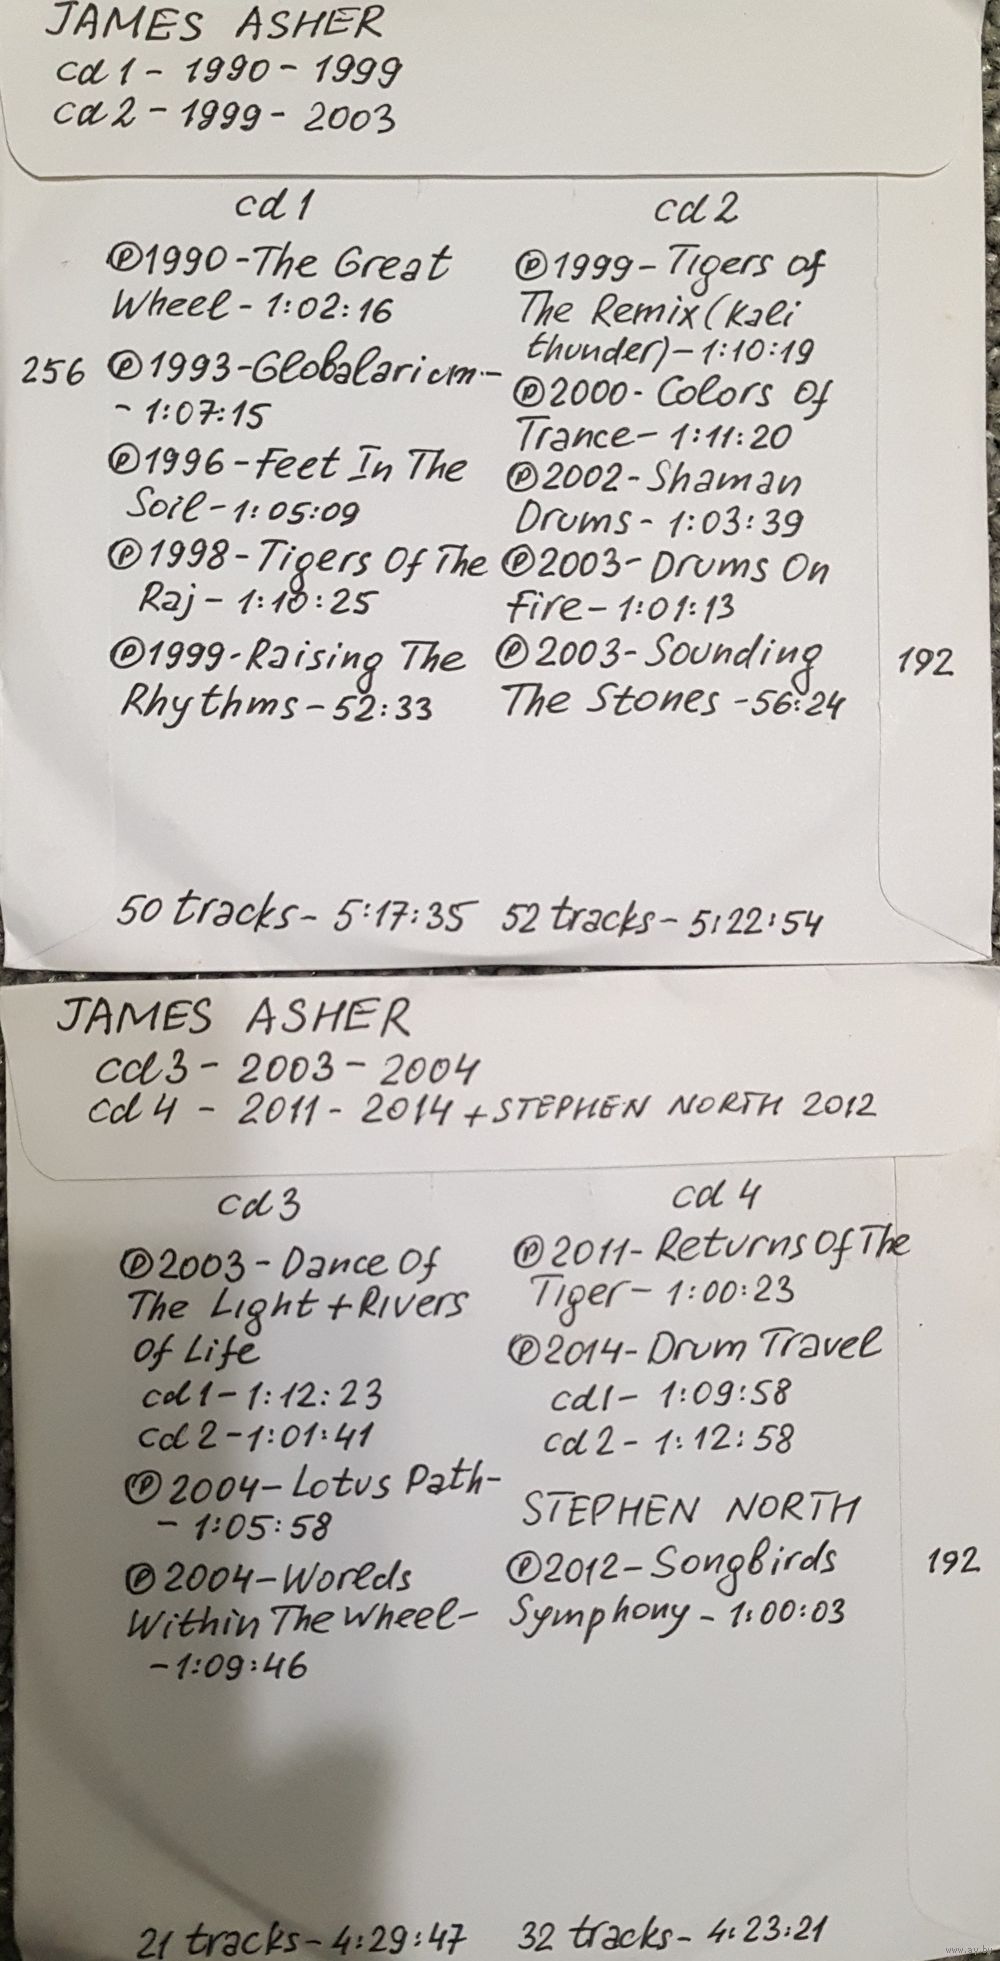 JAMES ASHER
cd 1 - 1990 - 1999
cd 2 - 1999 - 2003
cd 1
Ⓟ1990-The Great
Wheel - 1:02:16
256 Ⓟ1993-Globalarium-
- 1:07:15
Ⓟ1996-Feet In The
Soil - 1:05:09
Ⓟ1998-Tigers Of The
Raj - 1:10:25
Ⓟ1999-Raising The
Rhythms - 52:33
50 tracks - 5:17:35
cd 2
Ⓟ1999-Tigers Of
The Remix (Kali
thunder) - 1:10:19
Ⓟ2000-Colors Of
Trance - 1:11:20
Ⓟ2002-Shaman
Drums - 1:03:39
Ⓟ2003-Drums On
Fire - 1:01:13
Ⓟ2003-Sounding
The Stones - 56:24
192
52 tracks - 5:22:54
JAMES ASHER
cd 3 - 2003 - 2004
cd 4 - 2011 - 2014 + STEPHEN NORTH 2012
cd 3
Ⓟ2003-Dance Of
The Light + Rivers
Of Life
cd 1 - 1:12:23
cd 2 - 1:01:41
Ⓟ2004-Lotus Path-
- 1:05:58
Ⓟ2004-Worlds
Within The Wheel-
- 1:09:46
21 tracks - 4:29:47
cd 4
Ⓟ2011-Returns Of The
Tiger - 1:00:23
Ⓟ2014-Drum Travel
cd 1 - 1:09:58
cd 2 - 1:12:58
STEPHEN NORTH
Ⓟ2012-Songbirds
Symphony - 1:00:03
192
32 tracks - 4:23:21
www.ay.by